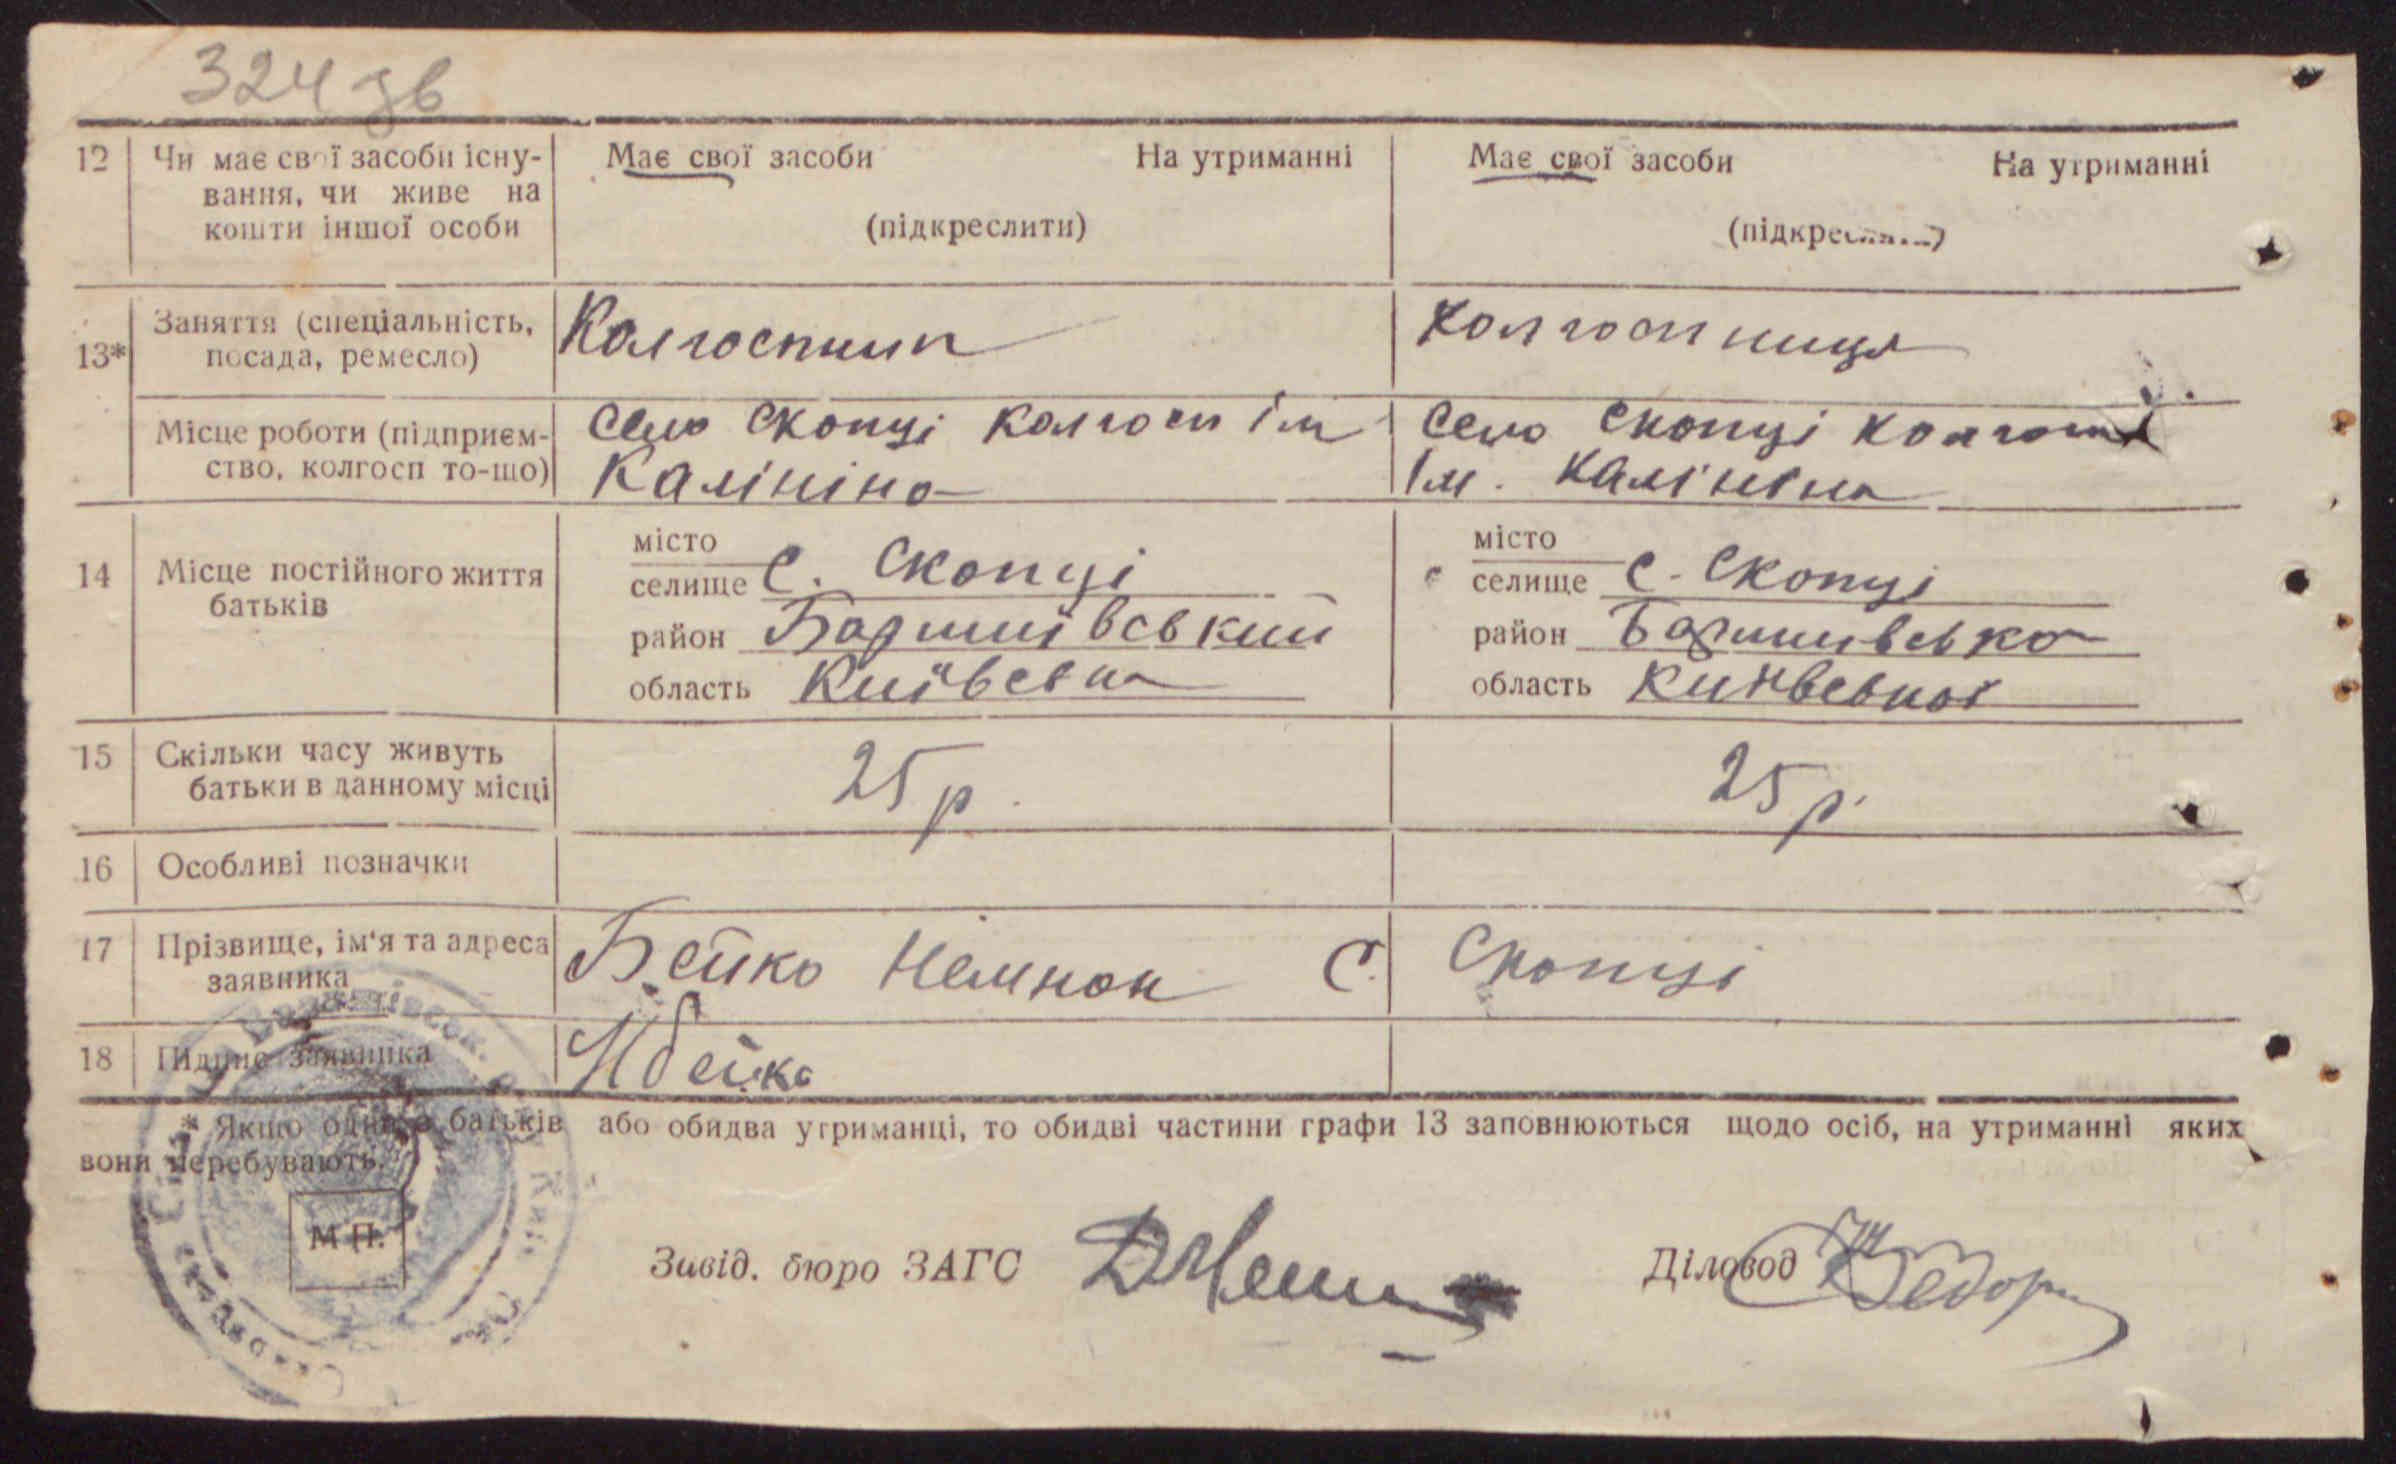 324 зв
12 Чи має свої засоби існу- Має свої засоби На утриманні Має свої засоби На утриманні
вання, чи живе на
кошти іншої особи (підкреслити) (підкреслити)
13* Заняття (спеціальність, Колгоспник Колгоспниця
посада, ремесло)
Місце роботи (підприєм- село Скопці колгосп ім село Скопці колгосп
ство, колгосп то-що) Калініна ім. Калініна
14 Місце постійного життя
батьків
місто місто
селище с. Скопці селище с. Скопці
район Баришівський район Баришивська
область Київська область
15 Скільки часу живуть 25 р. 25 р.
батьки в данному місці
16 Особливі позначки
17 Прізвище, ім'я та адреса Бейко С. Скопці
заявника
18 Підпис заявника Н Бейко
* Якщо один з батьків або обидва утриманці, то обидві частини графи 13 заповнюються щодо осіб, на утриманні яких
вони перебувають.
М П.
Завід. бюро ЗАГС Діловод